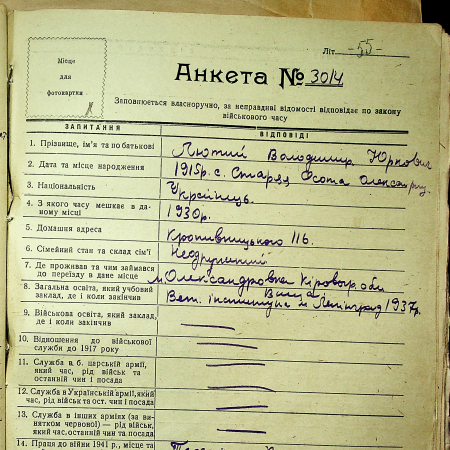 Літ. -55-
Місце
для
фотокартки
Анкета № 3014
Заповнюється власноручно, за неправдиві відомості відповідає по закону
військового часу
ЗАПИТАННЯ
ВІДПОВІДІ
1. Прізвище, ім'я та по батькові
Лютий Володимир Юркович
2. Дата та місце народження
1915р. с. Стара Осота Олександр.
3. Національність
Українець.
4. З якого часу мешкає в да-
ному місці
1930р.
5. Домашня адреса
Кропивницького 116.
6. Сімейний стан та склад сім'ї
Неодружений
7. Де проживав та чим займався
до переїзду в дане місце
м. Олександровка Кіровогр. обл
8. Загальна освіта, який учбовий
заклад, де і коли закінчив
Вища
Вет. інститут м Ленінград 1937р.
9. Військова освіта, який заклад,
де і коли закінчив
10. Відношення до військової
служби до 1917 року
11. Служба в б. царській армії,
який час, рід військ та
останній чин і посада
12. Служба в Українській армії, який
час, рід військ та ост. чин і посада
13. Служба в інших арміях (за ви-
нятком червоної) — рід військ,
який час, останній чин та посада
14. Праца до війни 1941 р., місце та